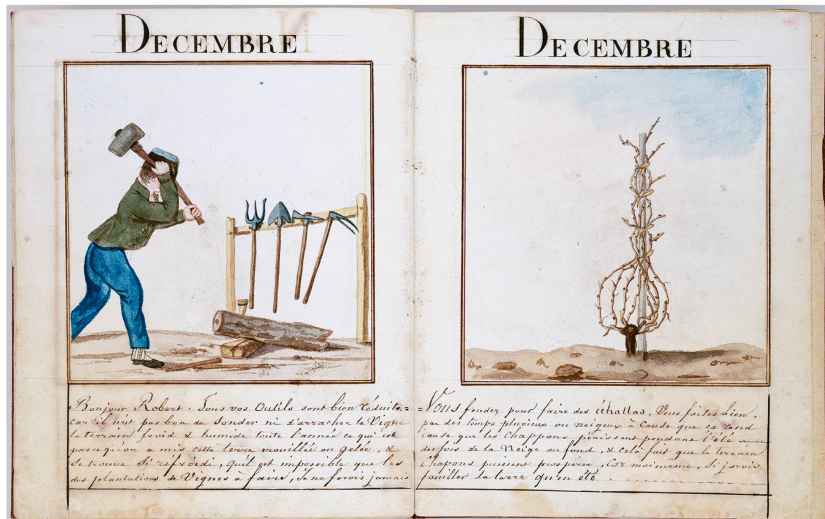 DECEMBRE
Bonjour Robert. Tous vos Outils sont bien réduits,=
car il n'est pas bon de sonder ni d'arracher la Vigne
le terrain froid & humide toute l'année ce qui est
parcequ'on a mis cette terre mouillée ou gelée, &
se trouve si refroidi, qu'il est impossible que les
des plantations de Vignes à faire, je ne ferois jamais
DECEMBRE
Vous fendez pour faire des échallas, Vous faites bien,
par des temps pluvieux ou neigeux à Cause que ça rend
cause que les Chappons périssent pendant l'été
de la Neige au fond, & cela fait que le terrain
Chapons puissent prospérer, Car moi même, si j'avois
la terre qu'en été